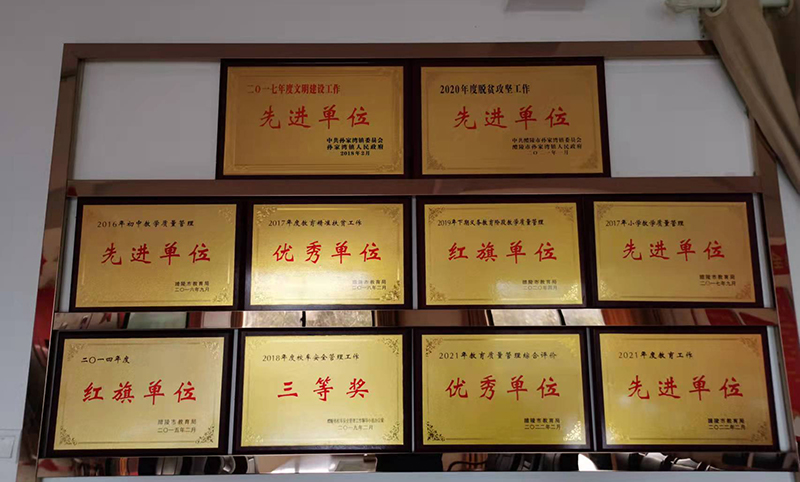 二〇一七年度文明建设工作
先进单位
中共孙家湾镇委员会
孙家湾镇人民政府
2018年2月
2020年度脱贫攻坚工作
先进单位
中共醴陵市孙家湾镇委员会
醴陵市孙家湾镇人民政府
二〇二一年一月
2016年初中教学质量管理
先进单位
醴陵市教育局
二〇一六年九月
2017年度教育精准扶贫工作
优秀单位
醴陵市教育局
二〇一八年二月
2019年下期义务教育阶段教学质量管理
红旗单位
醴陵市教育局
二〇二〇年四月
2017年小学教学质量管理
先进单位
醴陵市教育局
二〇一七年九月
二〇一四年度
红旗单位
醴陵市教育局
二〇一五年二月
2018年度校车安全管理工作
三等奖
二〇一九年二月
2021年教育质量管理综合评价
优秀单位
醴陵市教育局
二〇二二年二月
2021年度教育工作
先进单位
醴陵市教育局
二〇二二年二月